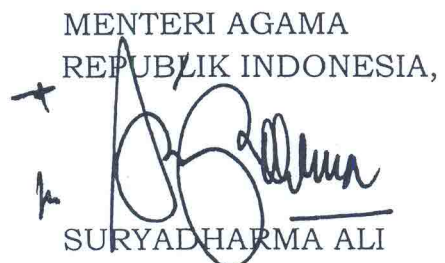 MENTERI AGAMA
REPUBLIK INDONESIA,
SURYADHARMA ALI